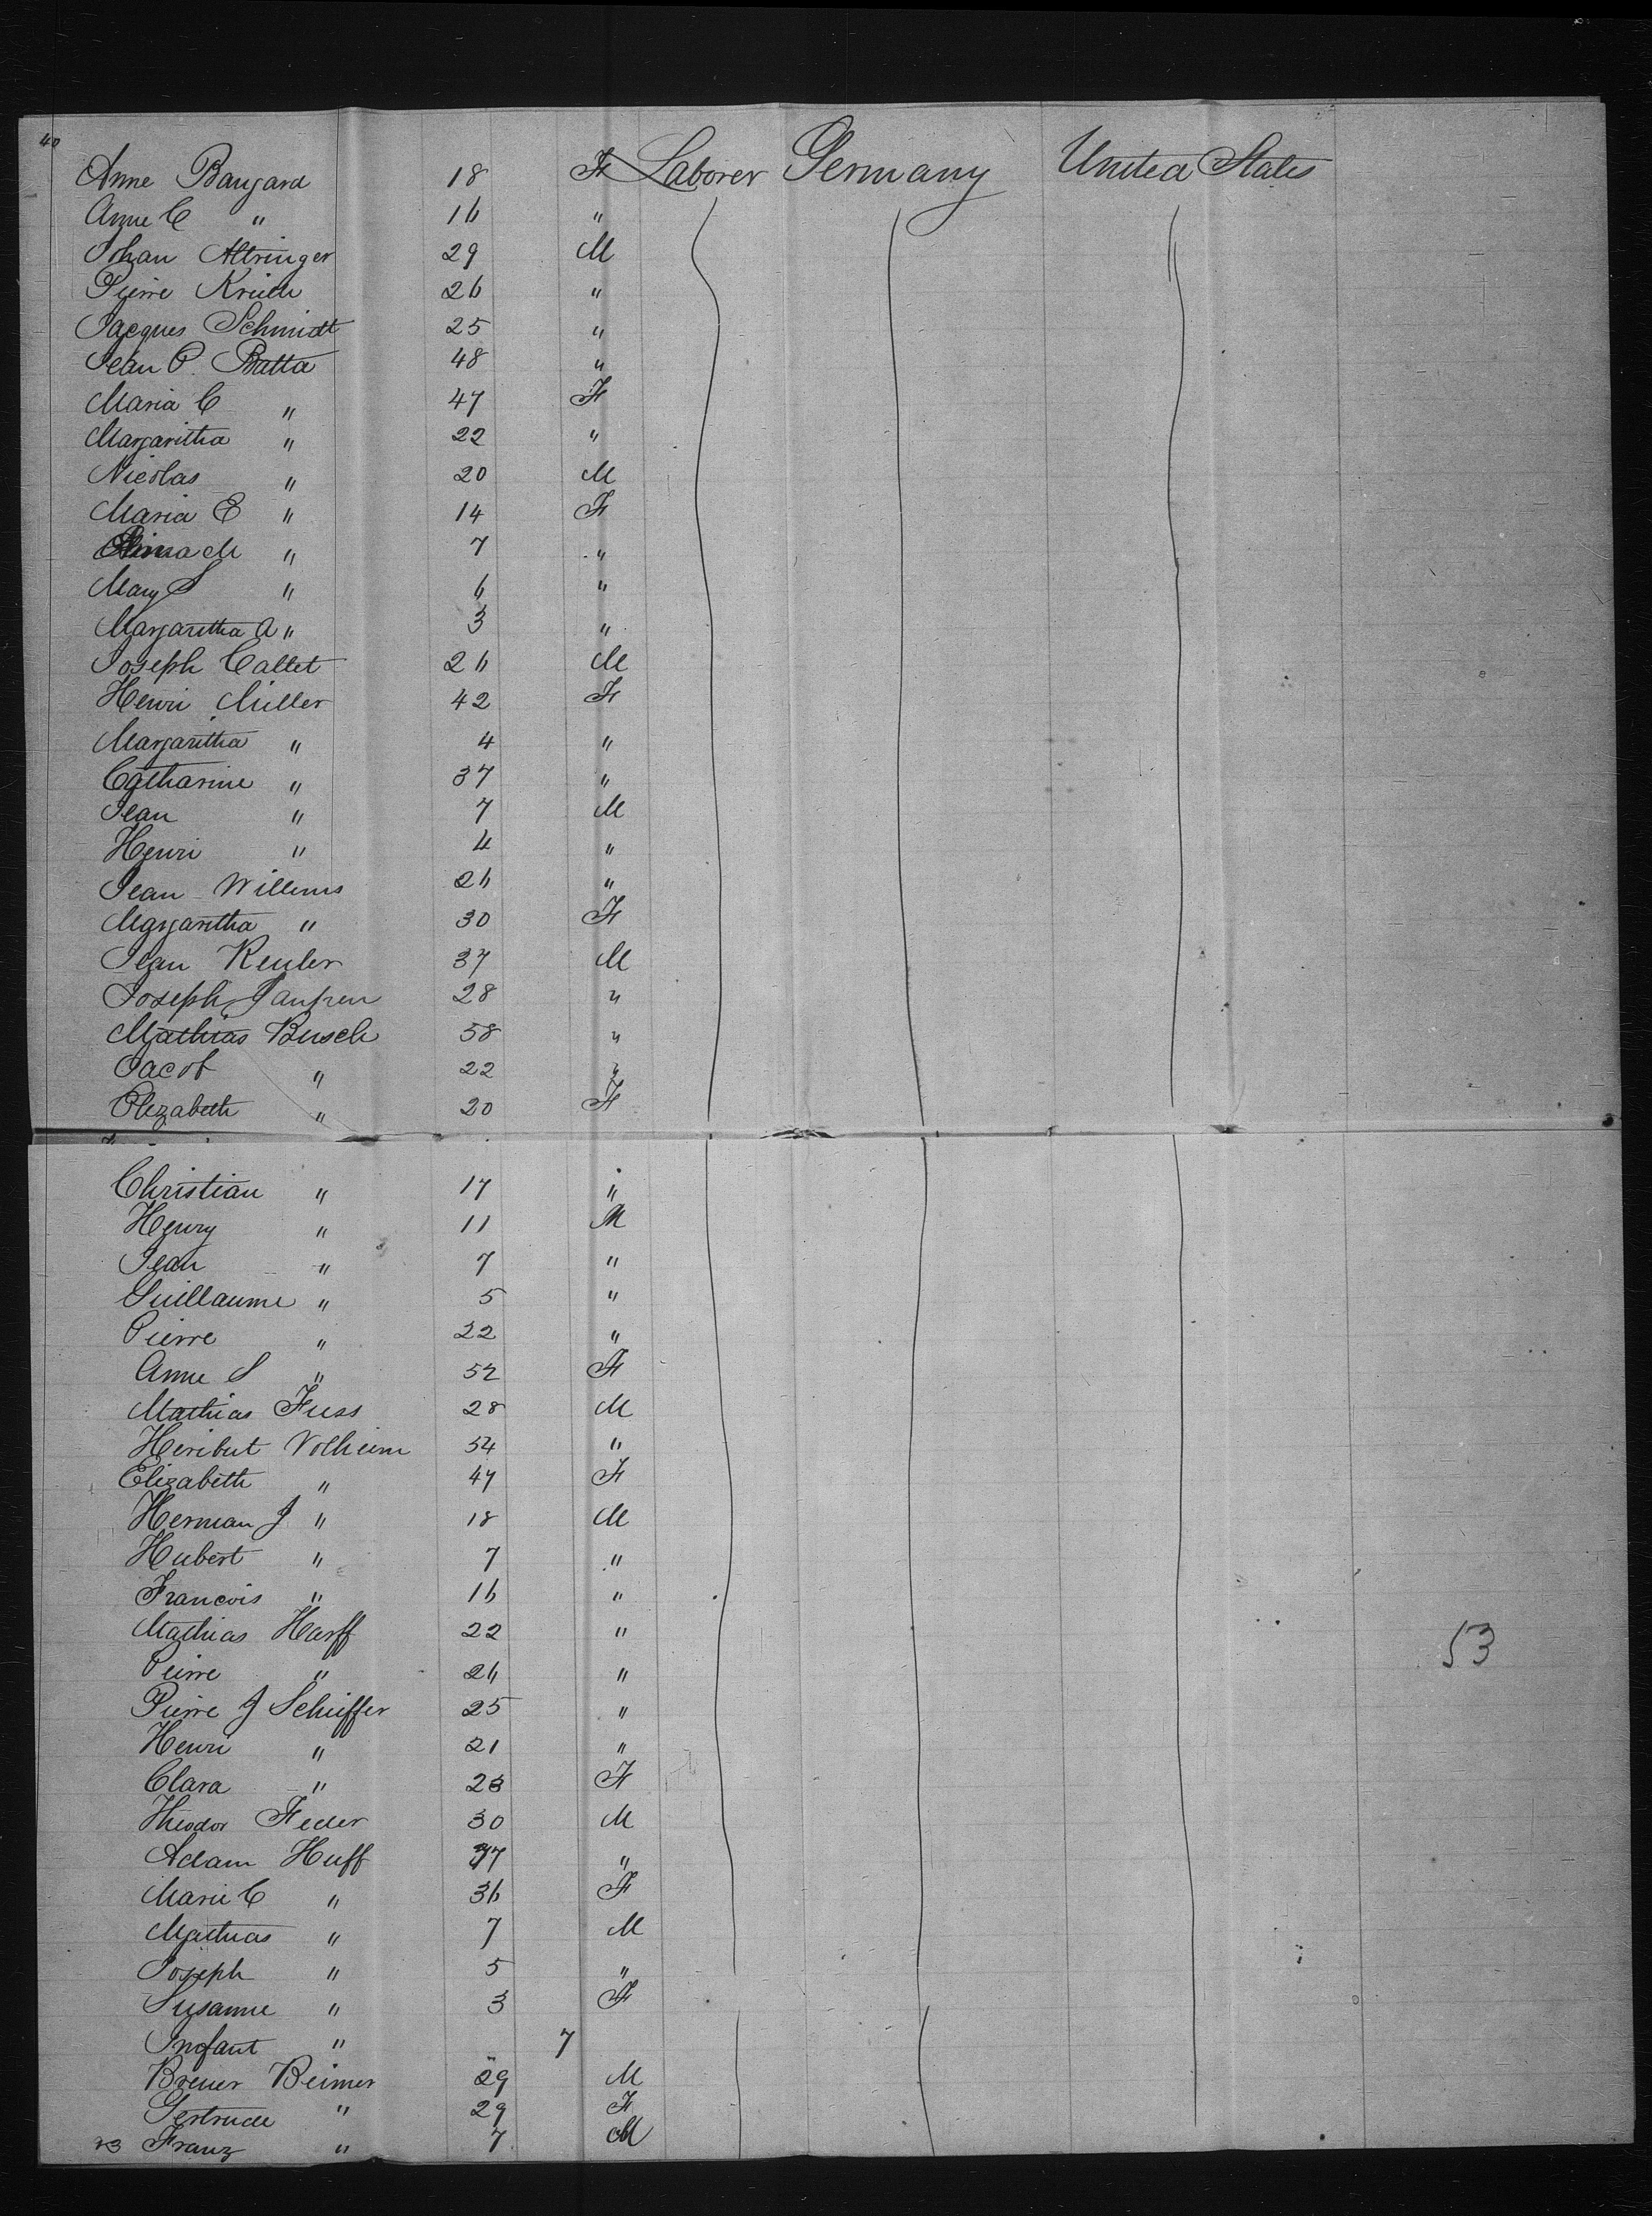 40
Anne Baujard 18 F Laborer Germany United States
Anne C " 16 "
Johan Altringer 29 M
Pierre Krieh 26 "
Jacques Schmidt 25 "
Jean P. Batta 48 "
Maria C " 47 F
Margaritha " 22 "
Nicolas " 20 M
Maria E " 14 F
M " 7 "
Mary S " 6 "
Margaritha A " 3 "
Joseph Callet 26 M
Henri Müller 42 F
Margaritha " 4 "
Catharine " 37 "
Jean " 7 M
Henri " 4 "
Jean Willems 26 "
Margaritha " 30 F
Jean Reuler 37 M
Joseph 28 "
Mathias Busch 58 "
Jacob " 22 "
Elizabeth " 20 F
Christian " 17 "
Henry " 11 M
Jean " 7 "
Guillaume " 5 "
Pierre " 22 "
Anne S " 52 F
Mathias Fuss 28 M
Heribut Volheim 54 "
Elizabeth " 47 F
Herman J " 18 M
Hubert " 7 "
Francois " 16 "
Mathias Harff 22 "
53
Peirre " 26 "
Pierre J Schiffer 25 "
Henri " 21 "
Clara " 23 F
Theodor Feder 30 M
Adam Huff 37 "
Marie C " 36 F
Mathias " 7 M
Joseph " 5 "
Suzanne " 3 F
Infant " 7
Breuer Reimer 29 M
Gertrude " 29 F
Franz " 7 M